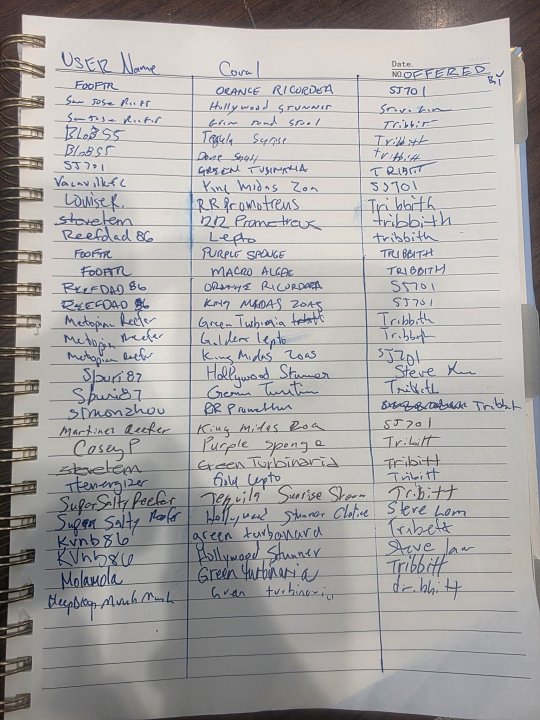 USER Name Coral Date. NO. OFFERED BY
FOOFTR ORANGE RICORDEA SJ701
San Jose Reefs Hollywood STUNNER Steve Lam
San Jose Reefs Tribbitt
BloB55 Tequila Sunrise Tribbitt
BloB55 tribbitt
SJ701 GREEN TUBINARIA TRIBIT
Vacavillefc King Midas Zoa SJ701
LouiseK RR Promotreus Tribbith
stevetem RR Prometreus tribbith
Reefdad 86 Lepto tribbith
FOOFTR PURPLE SPONGE TRIBBITH
FOOFTR MACRO ALGAE TRIBBITH
REEFDAD 86 ORANGE RICORDEA SJ701
REEFDAD 86 KING MADAS ZOAS SJ701
Metopian Reefer Green Turbinia Tribbith
Metopian Reefer Golden Lepto Tribbith
Metopian Reefer King Midas Zoas SJ701
Spuri87 Hollywood Stunner Steve
Spuri87 Green Tribbith
simonzhou RR Tribbit
Martinez Reefer King Midas Zoa SJ701
Casey P Purple Sponge Tribitt
stevetem Green Turbinaria Tribitt
Gold Lepto Tribitt
SuperSalty Reefer Tequila Sunrise Tribitt
Super Salty Reefer Hollywood Stunner Steve Lam
Kvnb86 green turbanard Tribett
Kvnb86 Hollywood Stunner Steve Lam
Molamola Green turbinaria Tribbitt
Green turbinaria tribbitt